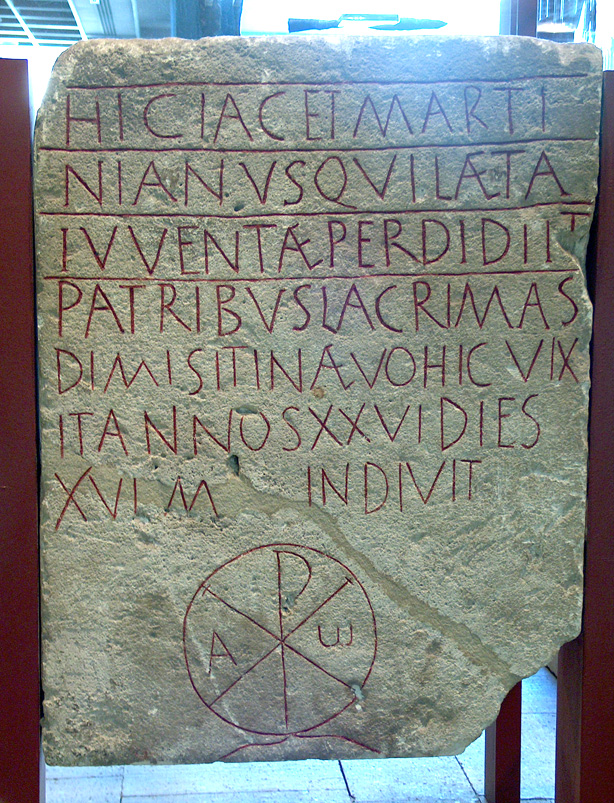 HICIACETMARTI
NIANVSQVILÆTA
IVVENTÆPERDIDIIT
PATRIBVSLACRIMAS
DIMISITINÆVOHICVIX
ITANNOSXXVIDIES
XVIM INDIVIT
☧
A ω